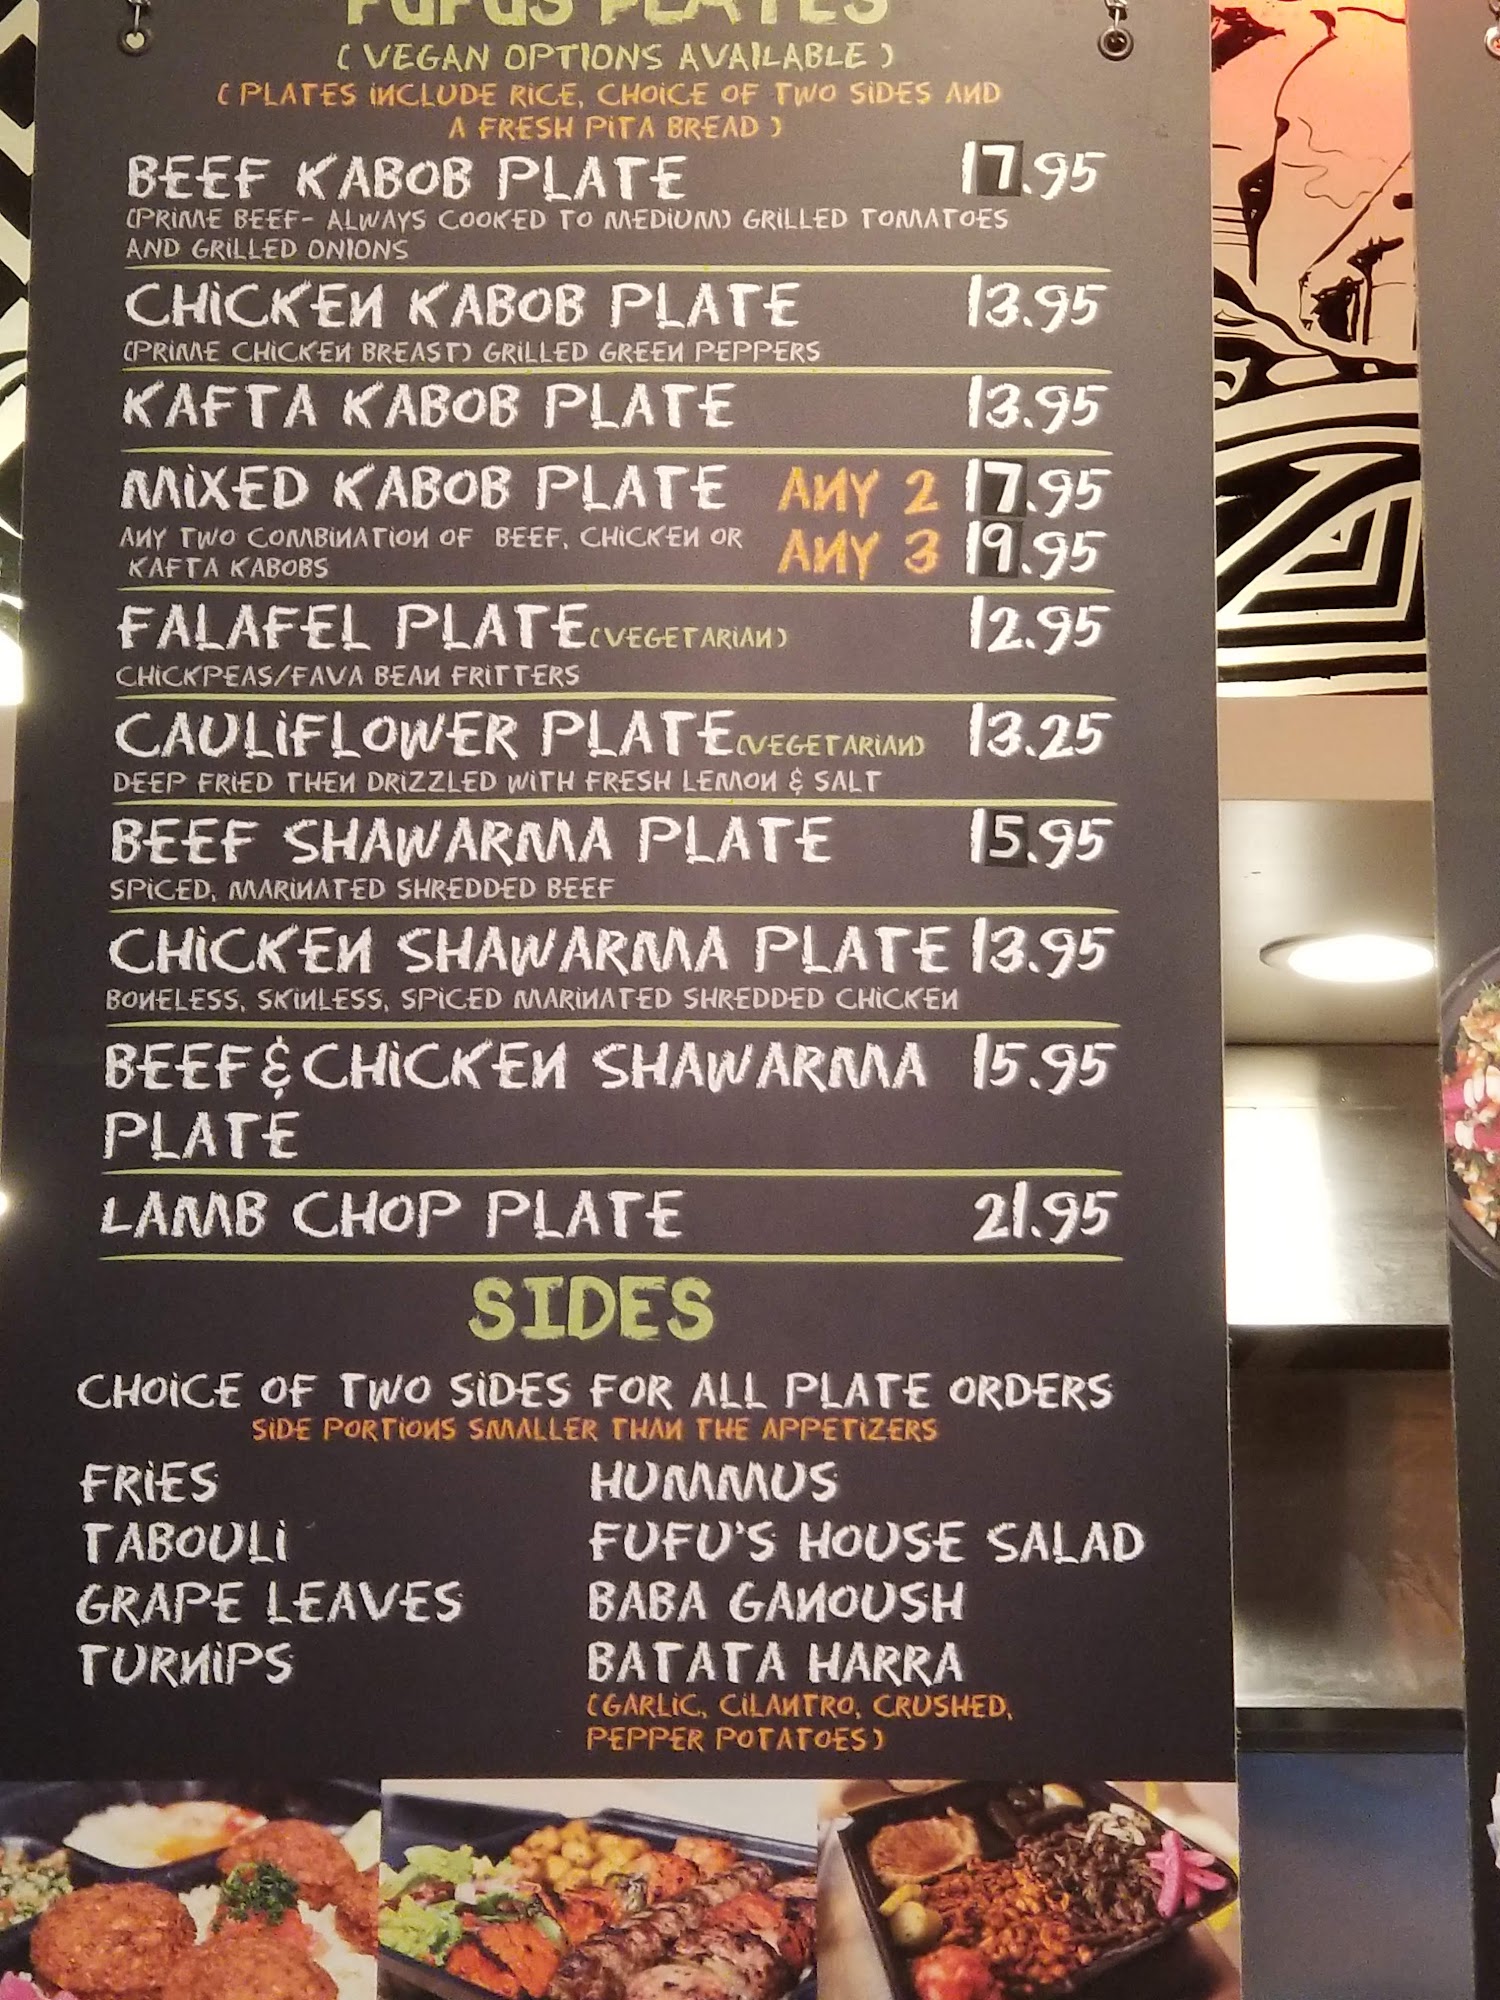 FUFUS PLATES
( VEGAN OPTIONS AVAILABLE )
( PLATES INCLUDE RICE, CHOICE OF TWO SIDES AND
A FRESH PITA BREAD )
BEEF KABOB PLATE 17.95
(PRIME BEEF- ALWAYS COOKED TO MEDIUM) GRILLED TOMATOES
AND GRILLED ONIONS
CHICKEN KABOB PLATE 13.95
(PRIME CHICKEN BREAST) GRILLED GREEN PEPPERS
KAFTA KABOB PLATE 13.95
MIXED KABOB PLATE ANY 2 17.95
ANY TWO COMBINATION OF BEEF, CHICKEN OR ANY 3 19.95
KAFTA KABOBS
FALAFEL PLATE (VEGETARIAN) 12.95
CHICKPEAS/FAVA BEAN FRITTERS
CAULIFLOWER PLATE (VEGETARIAN) 13.25
DEEP FRIED THEN DRIZZLED WITH FRESH LEMON & SALT
BEEF SHAWARMA PLATE 15.95
SPICED, MARINATED SHREDDED BEEF
CHICKEN SHAWARMA PLATE 13.95
BONELESS, SKINLESS, SPICED MARINATED SHREDDED CHICKEN
BEEF & CHICKEN SHAWARMA 15.95
PLATE
LAMB CHOP PLATE 21.95
SIDES
CHOICE OF TWO SIDES FOR ALL PLATE ORDERS
SIDE PORTIONS SMALLER THAN THE APPETIZERS
FRIES HUMMUS
TABOULI FUFU'S HOUSE SALAD
GRAPE LEAVES BABA GANOUSH
TURNIPS BATATA HARRA
(GARLIC, CILANTRO, CRUSHED,
PEPPER POTATOES)